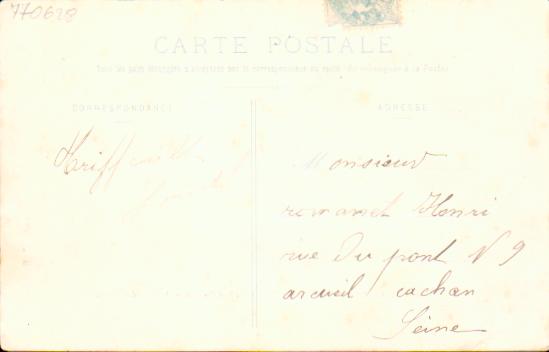 770628
CARTE POSTALE
Tous les pays étrangers n'acceptent pas la correspondance au recto. (Se renseigner à la Poste)
CORRESPONDANCE
ADRESSE
Monsieur
romanet Henri
rue Du pont N 9
arcueil cachan
Seine